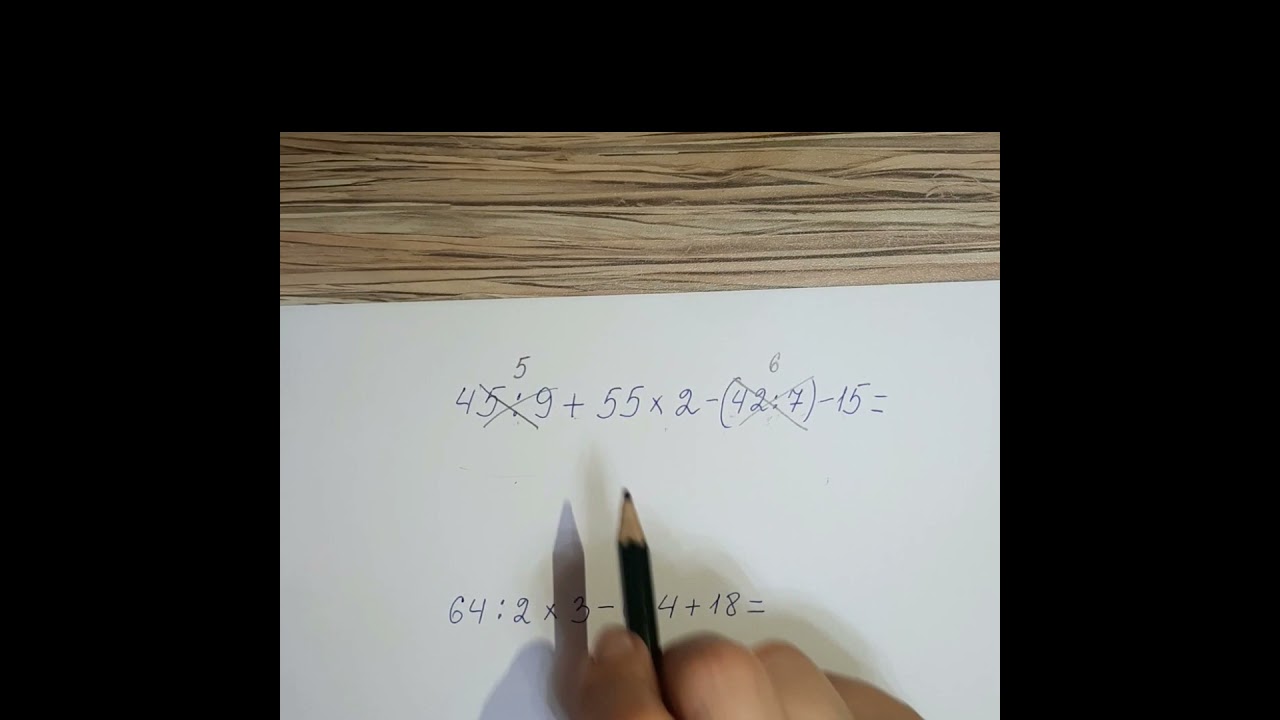 5 6
45:9+55×2-(42:7)-15=
64:2×3- 4+18=